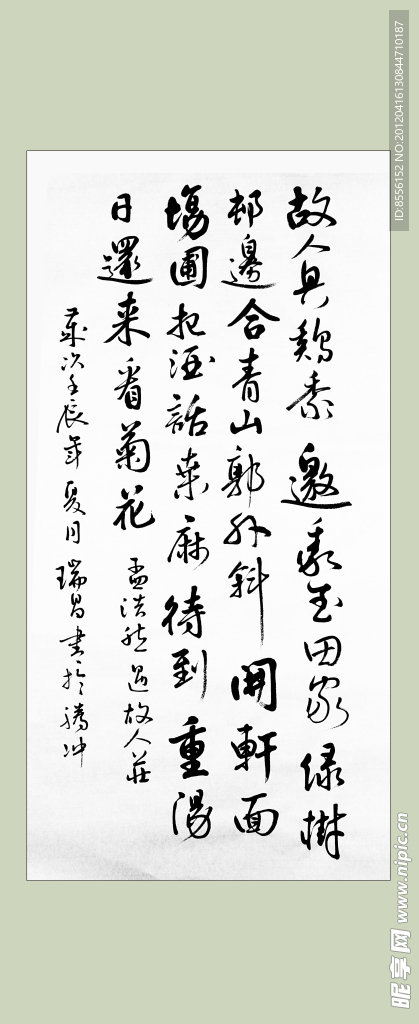 故人具鷄黍邀我至田家綠樹
邨邊合青山郭外斜開軒面
場圃把酒話桒麻待到重陽
日還来看菊花
孟浩然過故人莊
歲次壬辰年夏月瑞昌書於騰冲
ID:8556152 NO:20120416130844710187
昵享网 www.nipic.cn